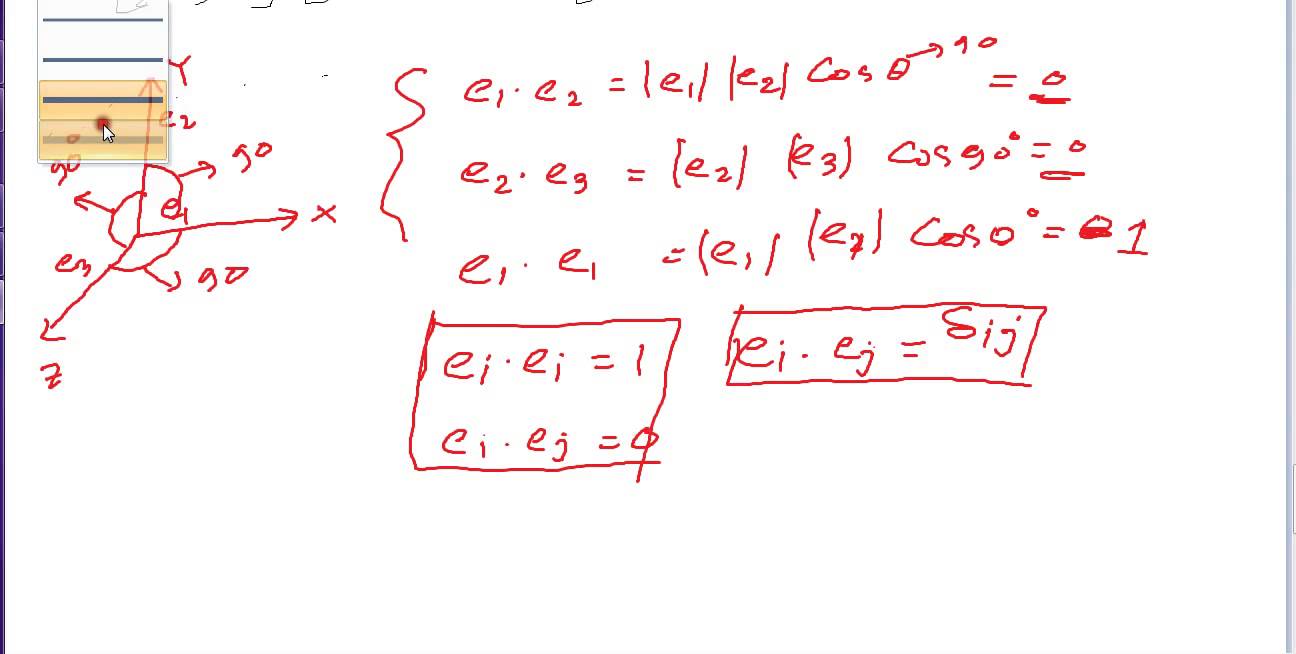 Y
e2
90
90°
e1
X
e3
90
Z
e1 · e2 = |e1| |e2| cos θ → 90 = 0
e2 · e3 = |e2| |e3| cos 90° = 0
e1 · e1 = |e1| |e1| cos 0° = 1
ei · ei = 1
ei · ej = 0
ei · ej = δij